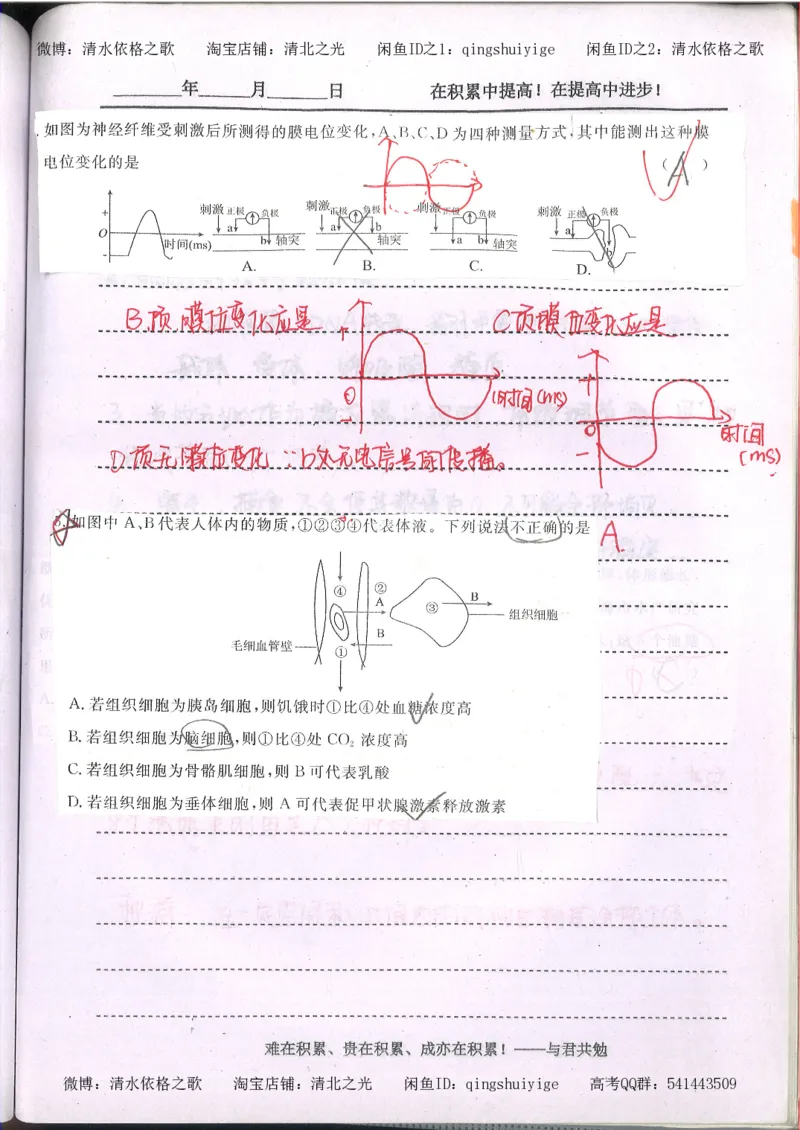 微博：清水依格之歌 淘宝店铺：清北之光 闲鱼ID之1：qingshuiyige 闲鱼ID之2：清水依格之歌
年 月 日 在积累中提高！在提高中进步！
如图为神经纤维受刺激后所测得的膜电位变化,A、B、C、D为四种测量方式,其中能测出这种膜
电位变化的是 （ A ）
+ O - 时间(ms)
刺激 正极 负极 a b 轴突 A.
刺激 正极 负极 a b 轴突 B.
刺激 正极 负极 a b 轴突 C.
刺激 正极 负极 a b D.
B项膜位变化应是 C项膜位变化应是
+ 0 - 时间(ms)
+ 0 - 时间(ms)
D项无膜位变化 ∵b处无电信号的传播。
5.如图中 A、B代表人体内的物质,①②③④代表体液。下列说法不正确的是 A.
④ ② A ③ B 组织细胞
毛细血管壁 ① B
A.若组织细胞为胰岛细胞,则饥饿时①比④处血糖浓度高
B.若组织细胞为脑细胞,则①比④处 CO₂ 浓度高
C.若组织细胞为骨骼肌细胞,则 B可代表乳酸
D.若组织细胞为垂体细胞,则 A 可代表促甲状腺激素释放激素
难在积累、贵在积累、成亦在积累！——与君共勉
微博：清水依格之歌 淘宝店铺：清北之光 闲鱼ID：qingshuiyige 高考QQ群：541443509